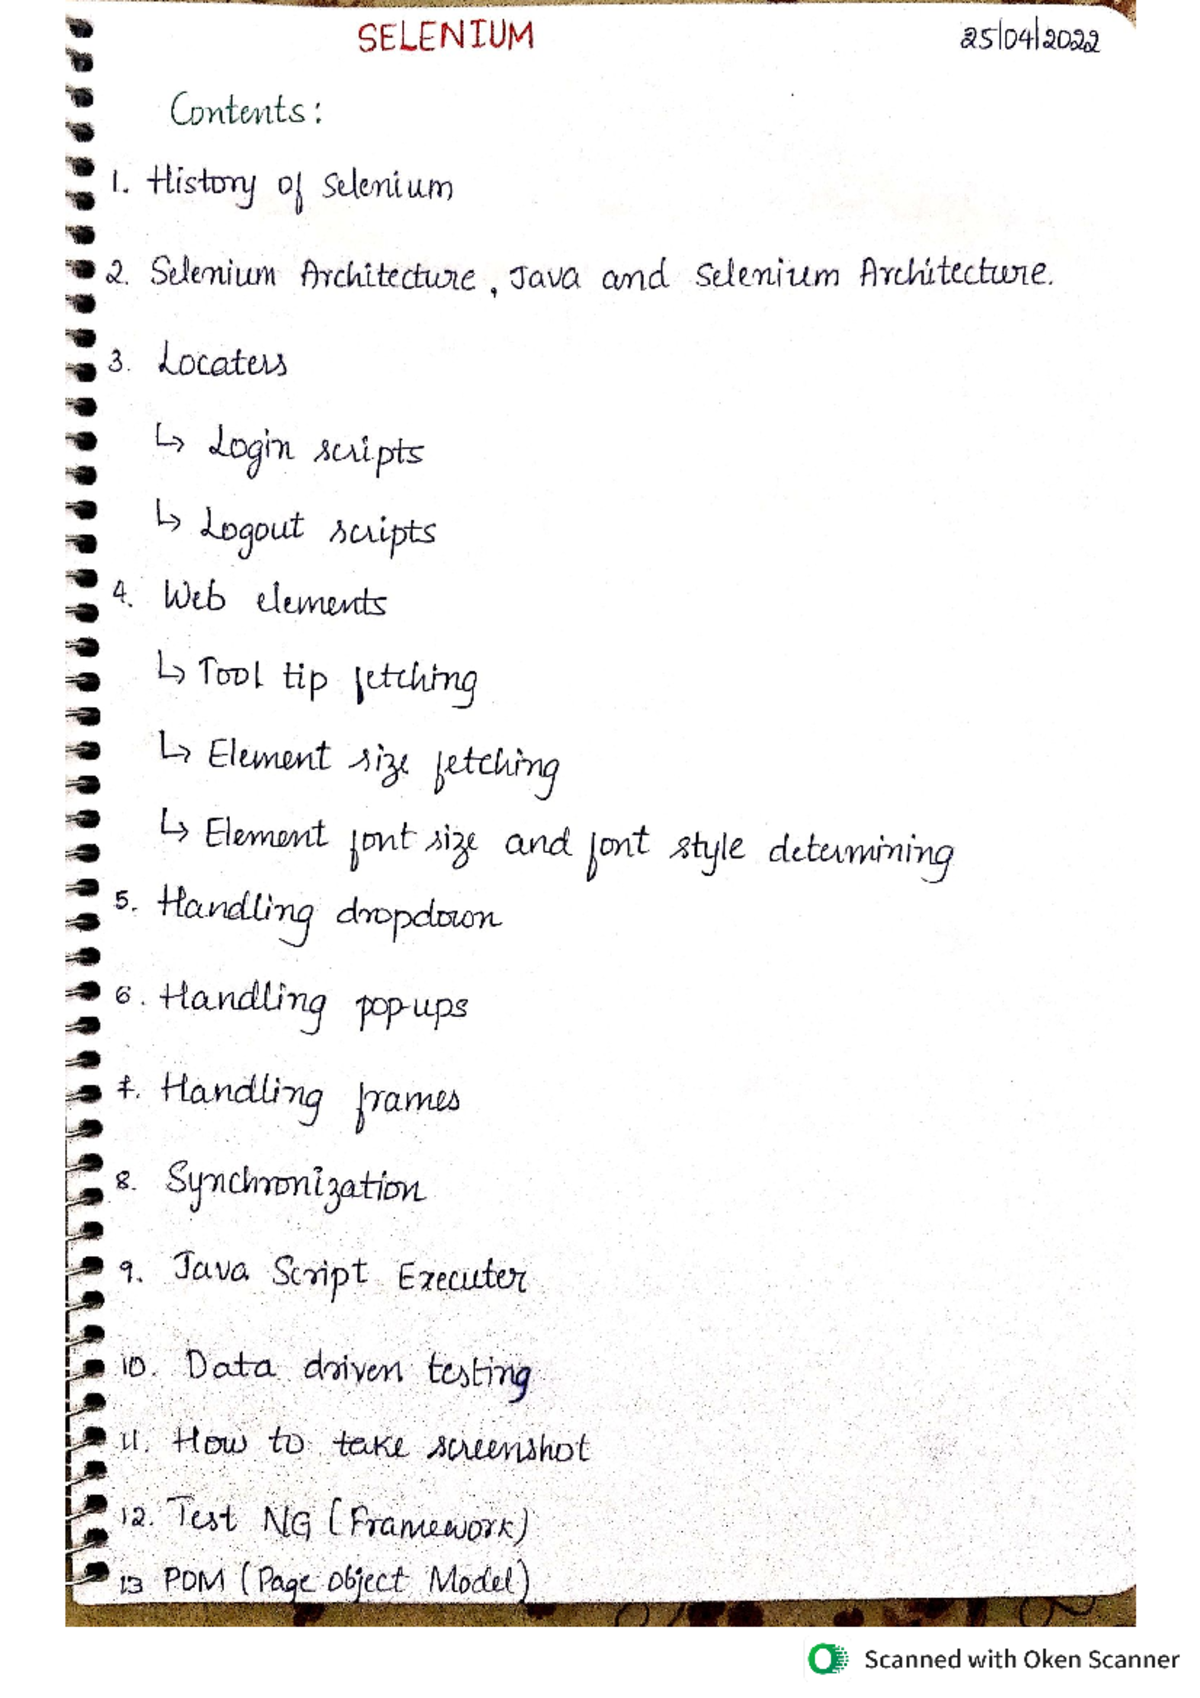 SELENIUM 25/04/2022
Contents:
1. History of Selenium
2. Selenium Architecture, Java and Selenium Architecture.
3. Locaters
↳ Login scripts
↳ Logout scripts
4. Web elements
↳ Tool tip fetching
↳ Element size fetching
↳ Element font size and font style determining
5. Handling dropdown
6. Handling pop-ups
7. Handling frames
8. Synchronization
9. Java Script Executer
10. Data driven testing
11. How to take screenshot
12. Test NG (Framework)
13 POM (Page object Model)
Scanned with Oken Scanner